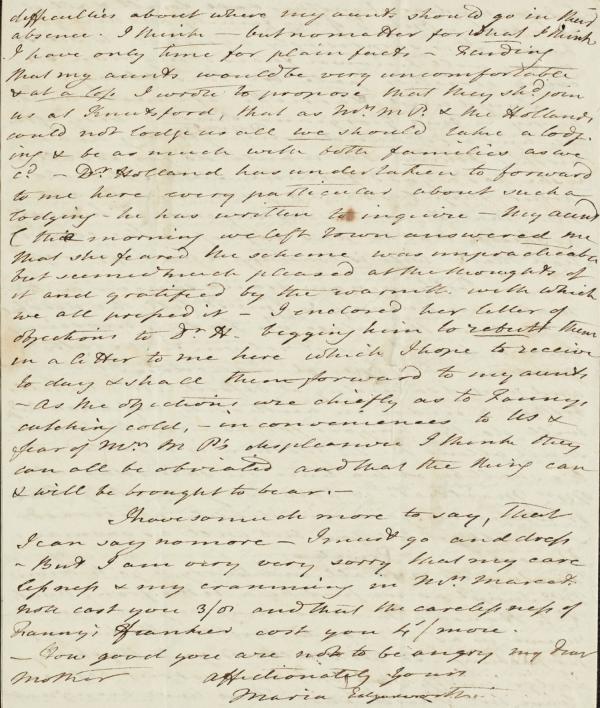 difficulties about where my aunts should go in their
absence. I think – but no matter for what I think
I have only time for plain facts – Finding
that my aunts would be very uncomfortable
& at a loss I wrote to propose that they shd. join
us at Knutsford, that as Mrs. M P. & the Hollands
could not lodge us all we should take a lodg-
ing & be as much with both families as we
cd. – Dr. Holland has undertaken to forward
to me here every particular about such a
lodging – he has written to inquire – My aunt
(the morning we left town answered me
that she feared the scheme was impracticable
but seemed much pleased at the thoughts of
it and gratified by the warmth with which
we all pressed it – I enclosed her letter of
objections to Dr. H. begging him to rebutt them
in a letter to me here which I hope to receive
to day & shall then forward to my aunts
– As the objections are chiefly as to Fannys
catching cold, – inconveniences to us &
fear of Mrs M P's displeasure I think they
can all be obviated and that the thing can
& will be brought to bear. –
I have so much more to say, that
I can say no more – I must go and dress
– But I am very very sorry that my care
lessness & my cramming in Mrs. Marcets
note cost you 3/0 and that the carelessness of
Fanny's franker cost you 4/ more.
– How good you are not to be angry my dear
Mother affectionately yours
Maria Edgeworth.